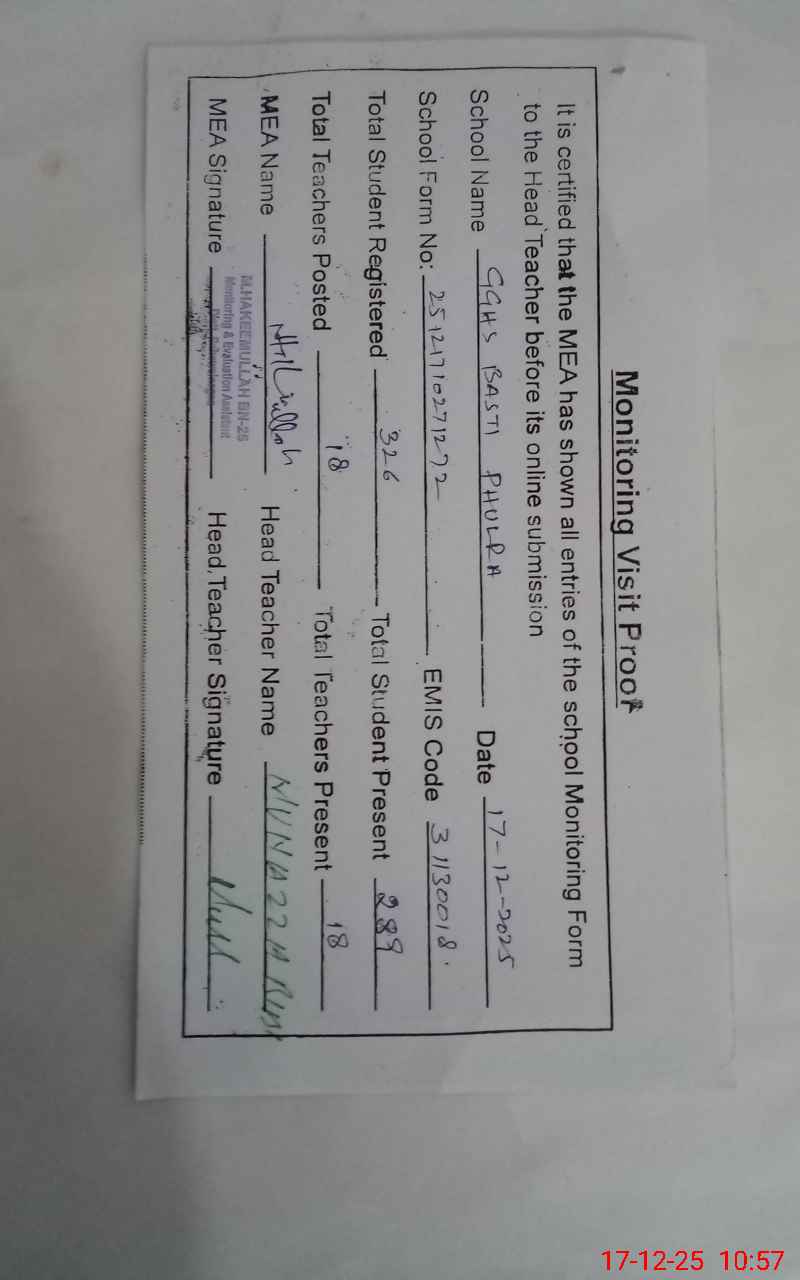 Monitoring Visit Proof
It is certified that the MEA has shown all entries of the school Monitoring Form
to the Head Teacher before its online submission
School Name GGHS BASTI PHULRA Date 17-12-2025
School Form No: 25121710271272 EMIS Code 31130018
Total Student Registered 326 Total Student Present 289
Total Teachers Posted 18 Total Teachers Present 18
MEA Name Head Teacher Name
M.HAKEEMULLAH BN-25
Monitoring & Evaluation Assistant
MEA Signature Head Teacher Signature
17-12-25 10:57